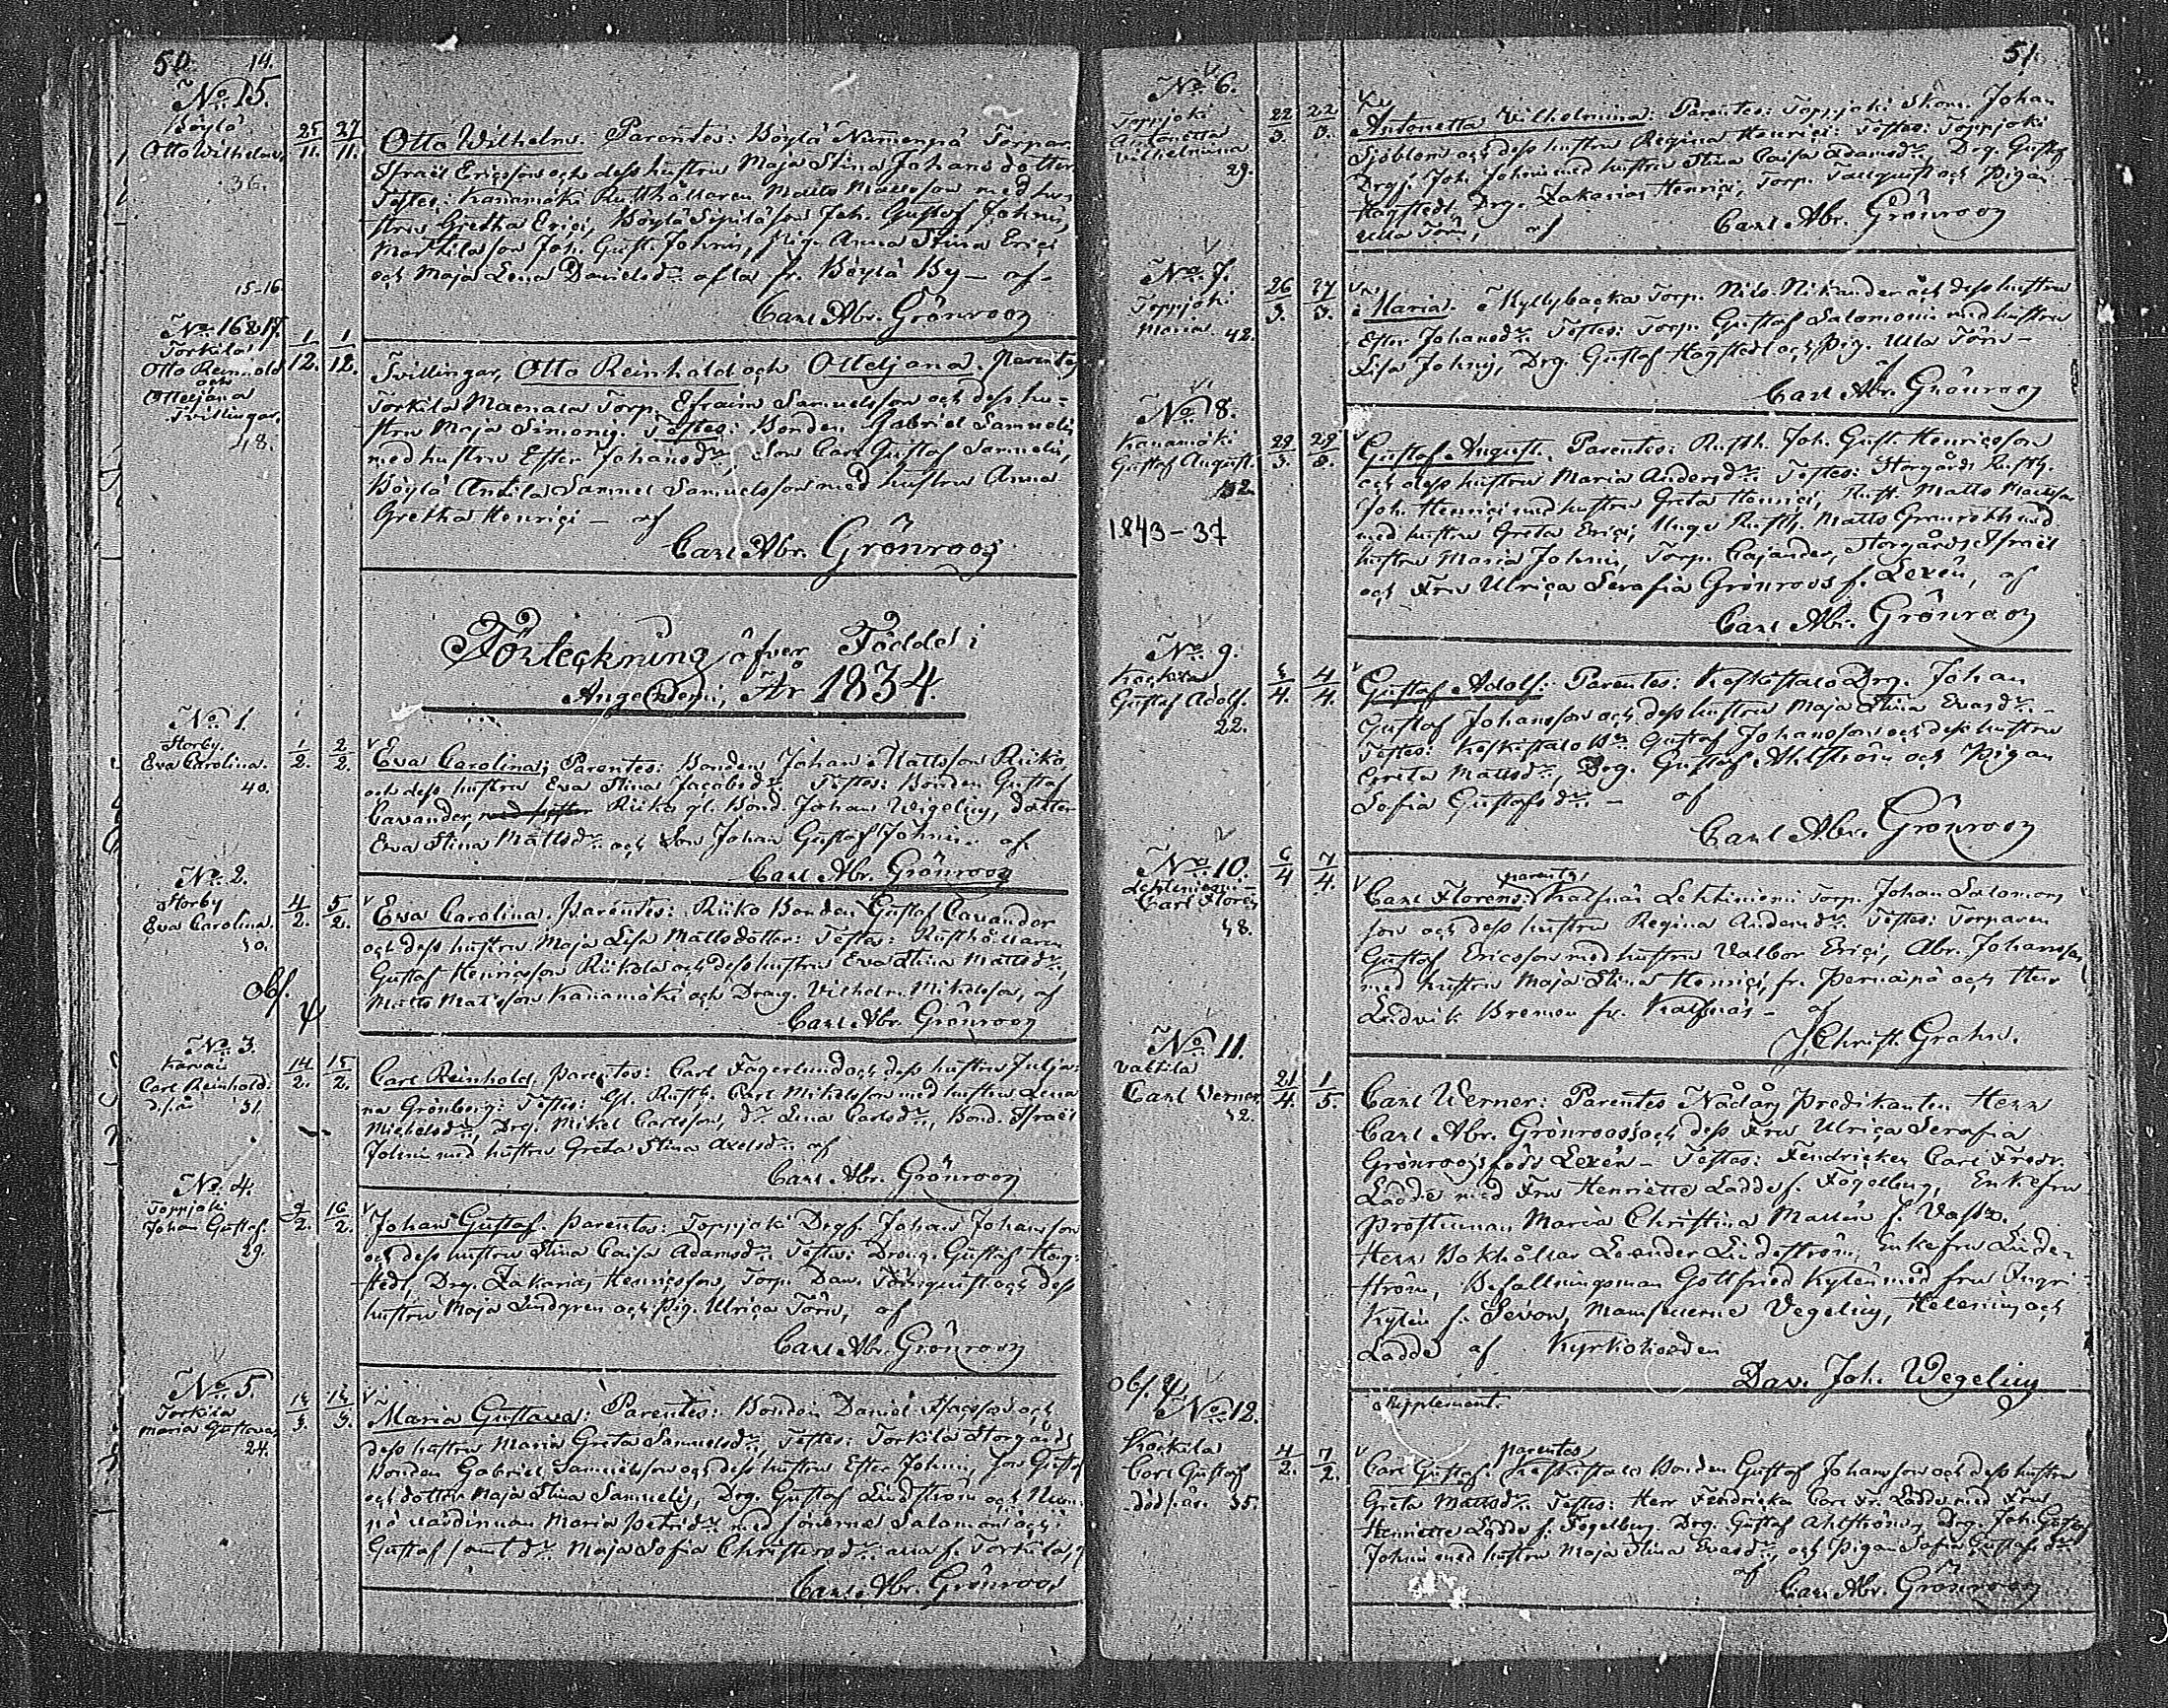 50. 14.
No 15.
Böylä
Otto Wilhelm.
36.
25/11. 27/11.
Otto Wilhelm. Parentes: Böylä Nummenpä Torpar.
Israël Ericsson och dess hustru Maja Stina Johansdotter
Testes: Kanamäki Rusthållaren Matts Mattsson med hu-
stru Gretha Erici, Böylä Sipilä son Joh. Gustaf Johnis,
Marttila son Joh. Gust. Johnis, Pig. Anna Stina Erici
och Maja Lena Danielsdr alla fr. Böylä By – af
Carl Abr. Grönroos
15-16.
No 16 & 17.
Torkila
Otto Reinhold
och
Otteljana
Tvillingar.
48.
1/12. 1/12.
Tvillingar, Otto Reinhold och Otteljana. Parentes
Torkila Maenala Torp. Efraim Samuelsson och dess hu-
stru Maja Simonis. Testes: Bonden Gabriel Samuelis
med hustru Ester Johansdr, Son Carl Gustaf Samuelis,
Böylä Anttila Samuel Samuelsson med hustru Anna
Gretha Henrici – af
Carl Abr. Grönroos
Förteckning öfver Födde i
Angelniemi, År 1834.
No 1.
Storby.
Eva Carolina.
40.
1/2. 2/2.
Eva Carolina; Parentes: Bonden Johan Mattsson Riiko
och dess hustru Eva Stina Jacobsdr. Testes: Bonden Gustaf
Cavander, Riiko gl. Bond. Johan Wigelius, dotter
Eva Stina Mattsdr och Son Johan Gustaf Johnis. af
Carl Abr. Grönroos
No 2.
Storby
Eva Carolina.
50.
4/2. 5/2.
Eva Carolina. Parentes: Riiko Bonden Gustaf Cavander
och dess hustru Maja Lisa Mattsdotter: Testes: Rusthållaren
Gustaf Henricsson Riikola och dess hustru Eva Stina Mattsdr,
Matts Mattsson Kanamäki och Dräng. Vilhelm Mikelsson, af
Carl Abr. Grönroos
obs.
No 3.
Karvais
Carl Reinhold.
d. s. år 31.
14/2. 15/2.
Carl Reinhold. Parentes: Carl Fagerlund och dess hustru Julja-
na Grönberg: Testes: Gl. Rusth. Carl Mikelsson med hustru Lena
Michelsdr, Drg. Mikel Carlsson, dr Lena Carlsdr, Bond. Israël
Johnis med hustru Greta Stina Axelsdr af
Carl Abr. Grönroos
No 4.
Toppjoki
Johan Gustaf.
29.
9/2. 16/2.
Johan Gustaf. Parentes: Toppjoki Drgs. Johan Johansson
och dess hustru Stina Caisa Adamsdr. Testes: Dräng. Gustaf Hög-
stedt, Drg. Zakarias Henricsson, Torp. Dav. Törnquist och dess
hustru Maja Lindgren och Pig. Ulrica Törn, af
Carl Abr. Grönroos
No 5.
Torkila
Maria Gustava.
24.
Maria Gustava: Parentes: Bonden Daniel Isacsson och
dess hustru Maria Greta Samuelsdr, Testes: Torkila Storgårds
Bonden Gabriel Samuelsson och dess hustru Ester Johnis, Son Gustaf
och dotter Maja Stina Samuelis, Drg. Gustaf Lindström och Num-
pä värdinnan Maria Petridr med sönerna Salomon och
Gustaf samt dr Maja Sofia Christersdr alla f. Torkila, af
Carl Abr. Grönroos
51.
No 6.
Toppjoki
Antonetta
Vilhelmina
29.
22/3. 22/3.
Antonetta Vilhelmina: Parentes: Toppjoki Skom. Johan
Sjöblom och dess hustru Regina Henrici: Testes: Toppjoki
Drgs. Joh. Johnis med hustru Stina Caisa Adamsdr, Drg. Gustaf
Hagstedt, Drg. Zakarias Henrici, Torp. och Pigan
Ulla Törn, af Carl Abr. Grönroos
No 7.
Toppjoki
Maria
42.
26/3. 27/3.
Maria. Myllybacka Torp. Nils Nikander och dess hustru
Ester Johansdr. Testes: Torp. Gustaf Salomonis med hustru
Lisa Johnis, Drg. Gustaf Hagstedt och Pig. Ulla Törn –
af
Carl Abr. Grönroos
No 8.
Kanamäki
Gustaf August.
1843-37
Gustaf August. Parentes: Rusth. Joh. Gust. Henricsson
och dess hustru Maria Andersdr. Testes: Storgårds Rusth.
Joh. Henrici med hustru Greta Henrici, Rusth. Matts Mattsson
med hustru Greta Erici, Unge Rusth. Matts Grönroth med
hustru Maria Johnis, Torp. Cajander, Storgårds Israël
och Fru Ulrica Serafia Grönroos f. Lexén, af
Carl Abr. Grönroos
No 9.
Gustaf Adolf.
22.
4/4.
Gustaf Adolf. Parentes: Koskistalo Drg. Johan
Gustaf Johansson och dess hustru Maja Stina Evasdr. –
Testes: Koskistalo Bn Gustaf Johansson och dess hustru
Greta Mattsdr, Drg. Gustaf Ahlström och Pigan
Sofia Gustafsdr – af
Carl Abr. Grönroos
No 10.
Lehtiniemi
Carl Florens
48.
6/4 7/4.
parentes
Carl Florens. Kalfnäs Lehtiniemi Torp. Johan Salomons
son och dess hustru Regina Andersdr. Testes: Torparen
Gustaf Ericsson med hustru Valbor Erici, Abr. Johansson
med hustru Maja Stina Henrici, fr. Pernäspä och Herr
Ludvik Bremer fr. Kalfnäs – af
J. Christ. Grahn.
No 11.
Valtila
Carl Verner
52.
21/4. 1/5.
Carl Werner: Parentes Nådårs Predikanten Herr
Carl Abr. Grönroos och dess Fru Ulrica Serafia
Grönroos född Lexén – Testes: Fendricken Carl Fredr.
Ladde med Fru Henriette Ladde f. Fogelberg, Enkefru
Prostinnan Maria Christina Mallén f. Vass.,
Herr Bokhållar Leander Lindeström, Enkefru Linde-
ström, Befallningsman Gottfried Kylén med fru Ingri
Kylén f. Sevon, Mamsellerne Vegelius, Helenius och
Ladde af Kyrkoherden
Dav. Joh. Wegelius
obs.
Supplement.
No 12.
Koskila
Carl Gustaf
död s. år. 35.
4/2. 7/2.
parentes
Carl Gustaf. Koskistalo Bonden Gustaf Johansson och dess hustru
Greta Mattsdr. Testes: Herr Fendricken Carl Fr. Ladde med Fru
Henriette Ladde f. Fogelberg. Drg. Gustaf Ahlström, Drg. Joh. Gustaf
Johnis med hustru Maja Stina Evasdr, och Pigan Sofia Gustafsdr
af Carl Abr. Grönroos